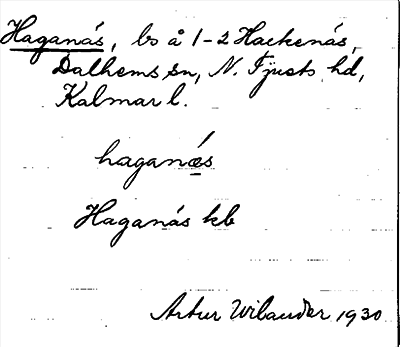 Haganäs, bs å 1-2 Hackenäs,
Dalhems sn, N. Tjusts hd,
Kalmar l.
haganæs
Haganäs kb
Artur Wilander 1930